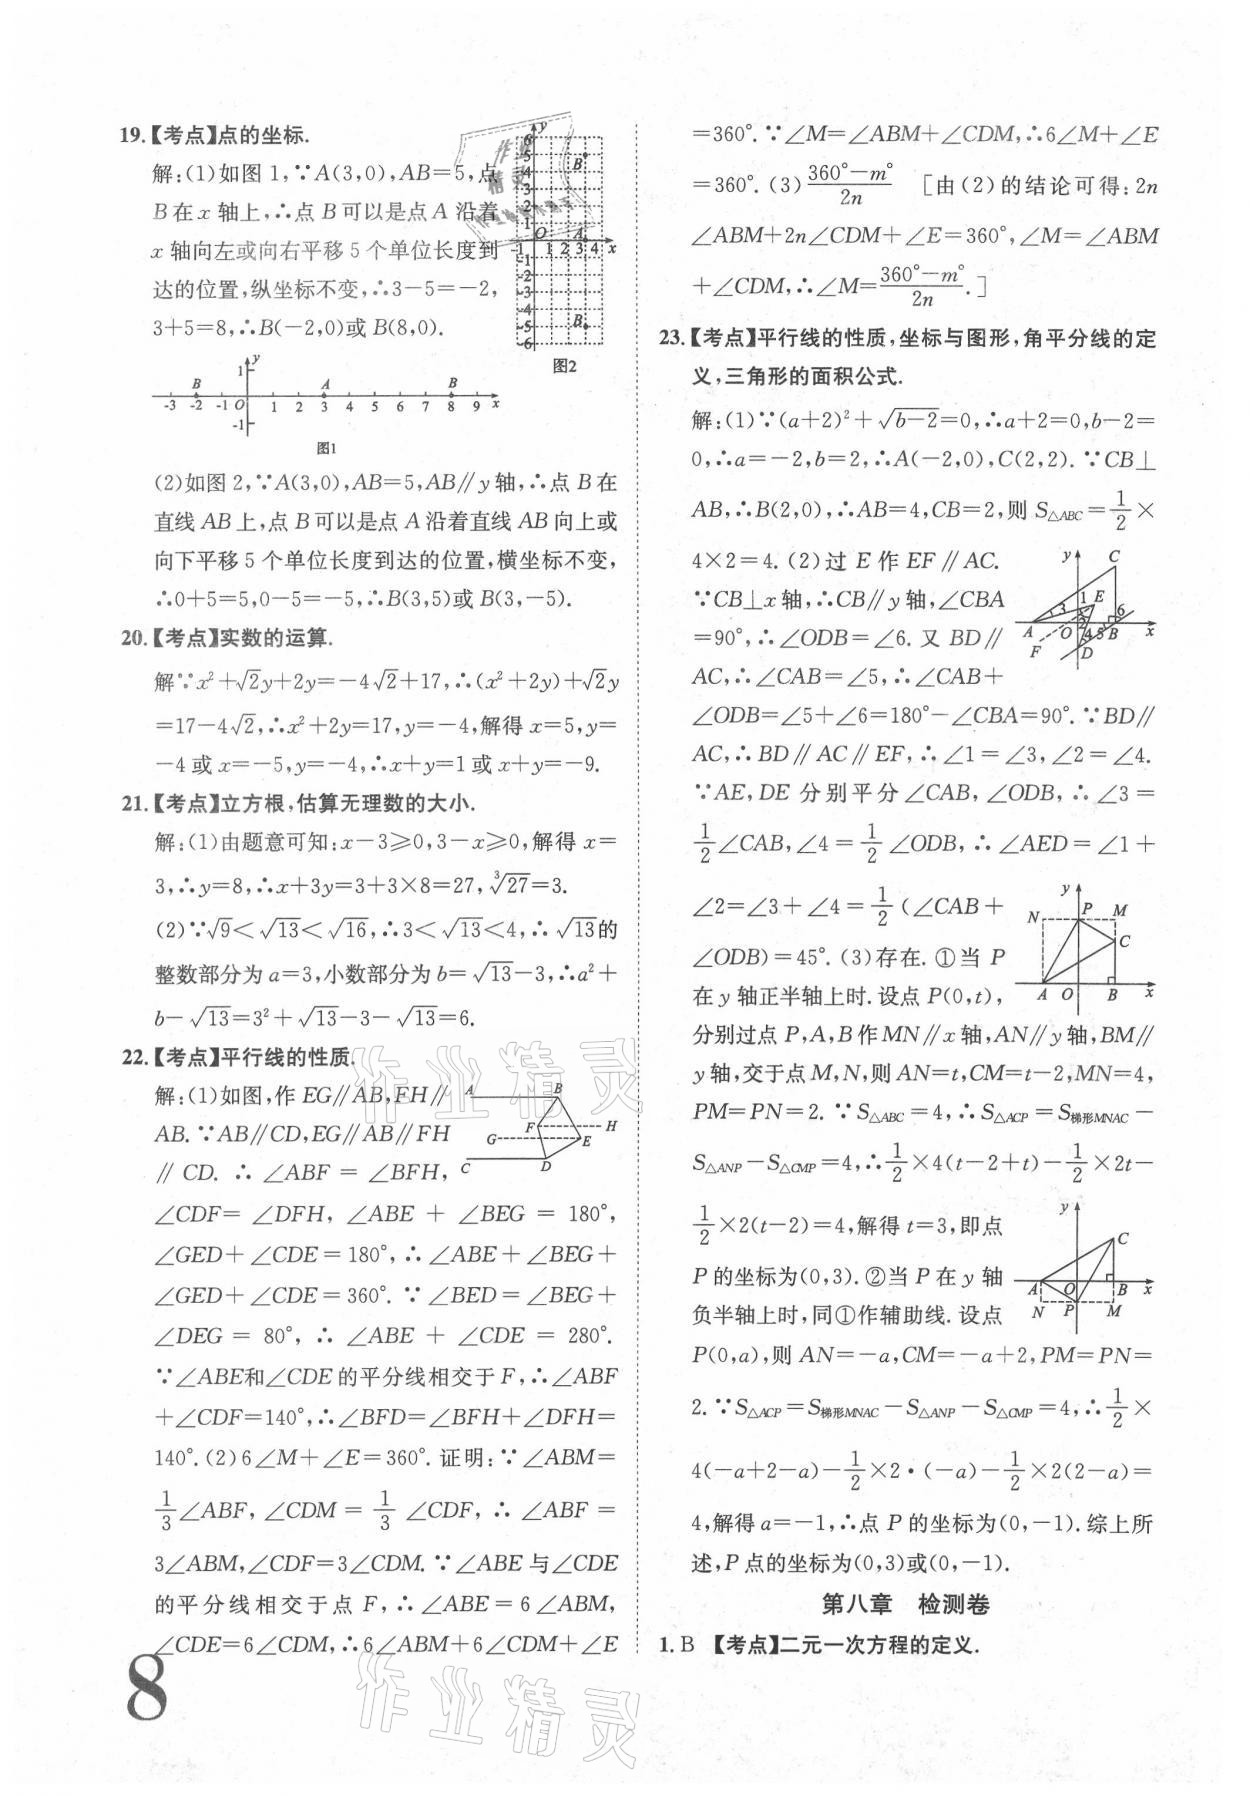 19.【考点】点的坐标.
解:(1)如图 1,∵A(3,0),AB=5,点
B在 x 轴上,∴点 B可以是点 A 沿着
x 轴向左或向右平移 5 个单位长度到
达的位置,纵坐标不变,∴3-5=-2,
3+5=8,∴B(-2,0)或 B(8,0).
图2
图1
(2)如图 2,∵A(3,0),AB=5,AB∥y 轴,∴点 B 在
直线 AB 上,点 B 可以是点 A 沿着直线 AB 向上或
向下平移 5 个单位长度到达的位置,横坐标不变,
∴0+5=5,0-5=-5,∴B(3,5)或 B(3,-5).
20.【考点】实数的运算.
解∵x²+√2y+2y=-4√2+17,∴(x²+2y)+√2y
=17-4√2,∴x²+2y=17,y=-4,解得 x=5,y=
-4 或 x=-5,y=-4,∴x+y=1 或 x+y=-9.
21.【考点】立方根,估算无理数的大小.
解:(1)由题意可知:x-3≥0,3-x≥0,解得 x=
3,∴y=8,∴x+3y=3+3×8=27,∛27=3.
(2)∵√9<√13<√16,∴3<√13<4,∴√13的
整数部分为 a=3,小数部分为 b=√13-3,∴a²+
b-√13=3²+√13-3-√13=6.
22.【考点】平行线的性质.
解:(1)如图,作 EG∥AB,FH∥
AB.∵AB∥CD,EG∥AB∥FH
∥CD. ∴∠ABF=∠BFH,
∠CDF=∠DFH,∠ABE+∠BEG=180°,
∠GED+∠CDE=180°,∴∠ABE+∠BEG+
∠GED+∠CDE=360°. ∵∠BED=∠BEG+
∠DEG=80°,∴∠ABE+∠CDE=280°.
∵∠ABE和∠CDE 的平分线相交于 F,∴∠ABF
+∠CDF=140°,∴∠BFD=∠BFH+∠DFH=
140°.(2)6∠M+∠E=360°. 证明:∵∠ABM=
1/3∠ABF,∠CDM=1/3∠CDF,∴∠ABF=
3∠ABM,∠CDF=3∠CDM. ∵∠ABE 与∠CDE
的平分线相交于点 F,∴∠ABE=6∠ABM,
∠CDE=6∠CDM,∴6∠ABM+6∠CDM+∠E
8
=360°.∵∠M=∠ABM+∠CDM,∴6∠M+∠E
=360°.(3)(360°-m°)/2n [由(2)的结论可得:2n
∠ABM+2n∠CDM+∠E=360°,∠M=∠ABM
+∠CDM,∴∠M=(360°-m°)/2n.]
23.【考点】平行线的性质,坐标与图形,角平分线的定
义,三角形的面积公式.
解:(1)∵(a+2)²+√(b-2)=0,∴a+2=0,b-2=
0,∴a=-2,b=2,∴A(-2,0),C(2,2).∵CB⊥
AB,∴B(2,0),∴AB=4,CB=2,则 S△ABC=1/2×
4×2=4.(2)过 E 作 EF∥AC.
∵CB⊥x 轴,∴CB∥y 轴,∠CBA
=90°,∴∠ODB=∠6. 又 BD∥
AC,∴∠CAB=∠5,∴∠CAB+
∠ODB=∠5+∠6=180°-∠CBA=90°.∵BD∥
AC,∴BD∥AC∥EF,∴∠1=∠3,∠2=∠4.
∵AE,DE 分别平分∠CAB,∠ODB,∴∠3=
1/2∠CAB,∠4=1/2∠ODB,∴∠AED=∠1+
∠2=∠3+∠4=1/2(∠CAB+
∠ODB)=45°.(3)存在.①当 P
在 y 轴正半轴上时.设点 P(0,t),
分别过点 P,A,B 作 MN∥x 轴,AN∥y 轴,BM∥
y 轴,交于点 M,N,则 AN=t,CM=t-2,MN=4,
PM=PN=2. ∵S△ABC=4,∴S△ACP=S梯形MNAC-
S△ANP-S△CMP=4,∴1/2×4(t-2+t)-1/2×2t-
1/2×2(t-2)=4,解得 t=3,即点
P 的坐标为(0,3).②当 P 在 y 轴
负半轴上时,同①作辅助线.设点
P(0,a),则 AN=-a,CM=-a+2,PM=PN=
2.∵S△ACP=S梯形MNAC-S△ANP-S△CMP=4,∴1/2×
4(-a+2-a)-1/2×2·(-a)-1/2×2(2-a)=
4,解得 a=-1,∴点 P 的坐标为(0,-1).综上所
述,P 点的坐标为(0,3)或(0,-1).
第八章 检测卷
1. B 【考点】二元一次方程的定义.
作业精灵
作业精灵